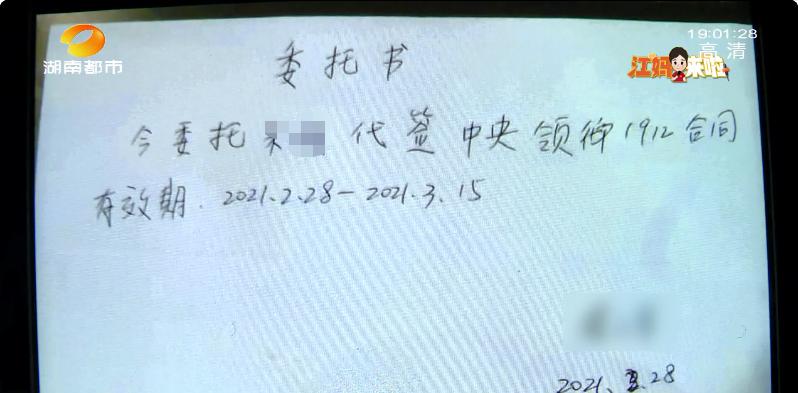 湖南都市
19:01:28
高清
江妈来啦
委托书
今委托 代签中央领御1912合同
有效期. 2021.2.28-2021.3.15
2021. 2.28